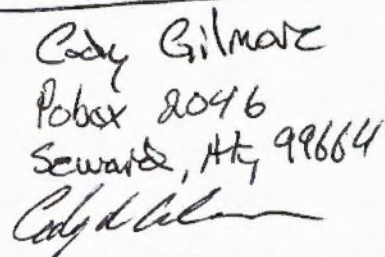 Cody Gilmore
Pobox 2046
Seward, AK, 99664
Cody